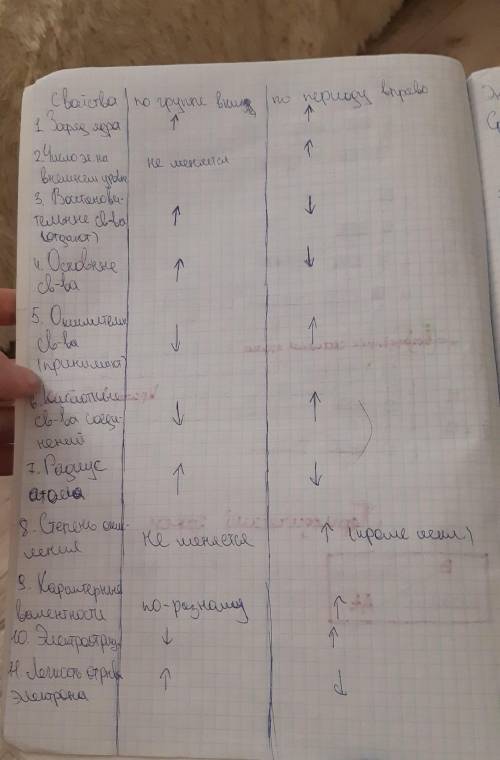 Свойства по группе вниз по периоду вправо
1. Заряд ядра ↑ ↑
2. Число эл на
внешнем уровне не меняется ↑
3. Восстанови-
тельные св-ва ↑ ↓
(отдают)
4. Основные ↑ ↓
св-ва
5. Окислительн
св-ва ↓ ↑
(принимают)
6. Кислотные
св-ва соеди- ↓ ↑
нений
7. Радиус ↑ ↓
атома
8. Степень окис-
ления Не меняется ↑ (кроме искл)
9. Характерные
валентности по-разному ↑
10. Электроотриц ↓ ↑
11. Легкость отрыва ↑ ↓
электрона